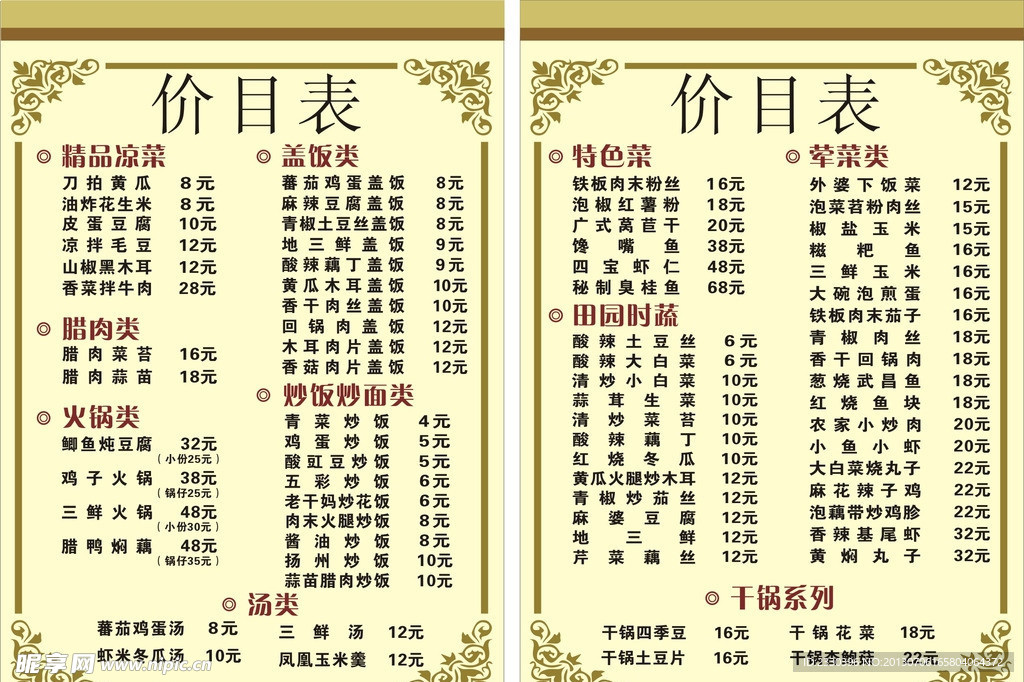 价目表
精品凉菜
刀拍黄瓜 8元
油炸花生米 8元
皮蛋豆腐 10元
凉拌毛豆 12元
山椒黑木耳 12元
香菜拌牛肉 28元
腊肉类
腊肉菜苔 16元
腊肉蒜苗 18元
火锅类
鲫鱼炖豆腐 32元
(小份25元)
鸡子火锅 38元
(锅仔25元)
三鲜火锅 48元
(小份30元)
腊鸭焖藕 48元
(锅仔35元)
盖饭类
蕃茄鸡蛋盖饭 8元
麻辣豆腐盖饭 8元
青椒土豆丝盖饭 8元
地三鲜盖饭 9元
酸辣藕丁盖饭 9元
黄瓜木耳盖饭 10元
香干肉丝盖饭 10元
回锅肉盖饭 12元
木耳肉片盖饭 12元
香菇肉片盖饭 12元
炒饭炒面类
青菜炒饭 4元
鸡蛋炒饭 5元
酸豇豆炒饭 5元
五彩炒饭 6元
老干妈炒花饭 6元
肉末火腿炒饭 8元
酱油炒饭 8元
扬州炒饭 10元
蒜苗腊肉炒饭 10元
汤类
蕃茄鸡蛋汤 8元
虾米冬瓜汤 10元
三鲜汤 12元
凤凰玉米羹 12元
价目表
特色菜
铁板肉末粉丝 16元
泡椒红薯粉 18元
广式莴苣干 20元
馋嘴鱼 38元
四宝虾仁 48元
秘制臭桂鱼 68元
田园时蔬
酸辣土豆丝 6元
酸辣大白菜 6元
清炒小白菜 10元
蒜茸生菜 10元
清炒菜苔 10元
酸辣藕丁 10元
红烧冬瓜 10元
黄瓜火腿炒木耳 12元
青椒炒茄丝 12元
麻婆豆腐 12元
地三鲜 12元
芹菜藕丝 12元
荤菜类
外婆下饭菜 12元
泡菜苕粉肉丝 15元
椒盐玉米 15元
糍粑鱼 16元
三鲜玉米 16元
大碗泡煎蛋 16元
铁板肉末茄子 16元
青椒肉丝 18元
香干回锅肉 18元
葱烧武昌鱼 18元
红烧鱼块 18元
农家小炒肉 20元
小鱼小虾 20元
大白菜烧丸子 22元
麻花辣子鸡 22元
泡藕带炒鸡胗 22元
香辣基尾虾 32元
黄焖丸子 32元
干锅系列
干锅四季豆 16元
干锅土豆片 16元
干锅花菜 18元
干锅杏鲍菇 22元
昵享网 www.nipic.cn